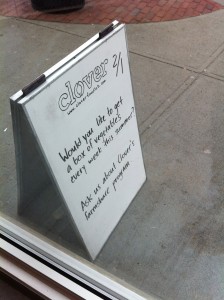 clover 2/1
www.cloverfoodlab.com
Would you like to get
a box of vegetables
every week this summer?
Ask us about Clover's
farmshare program